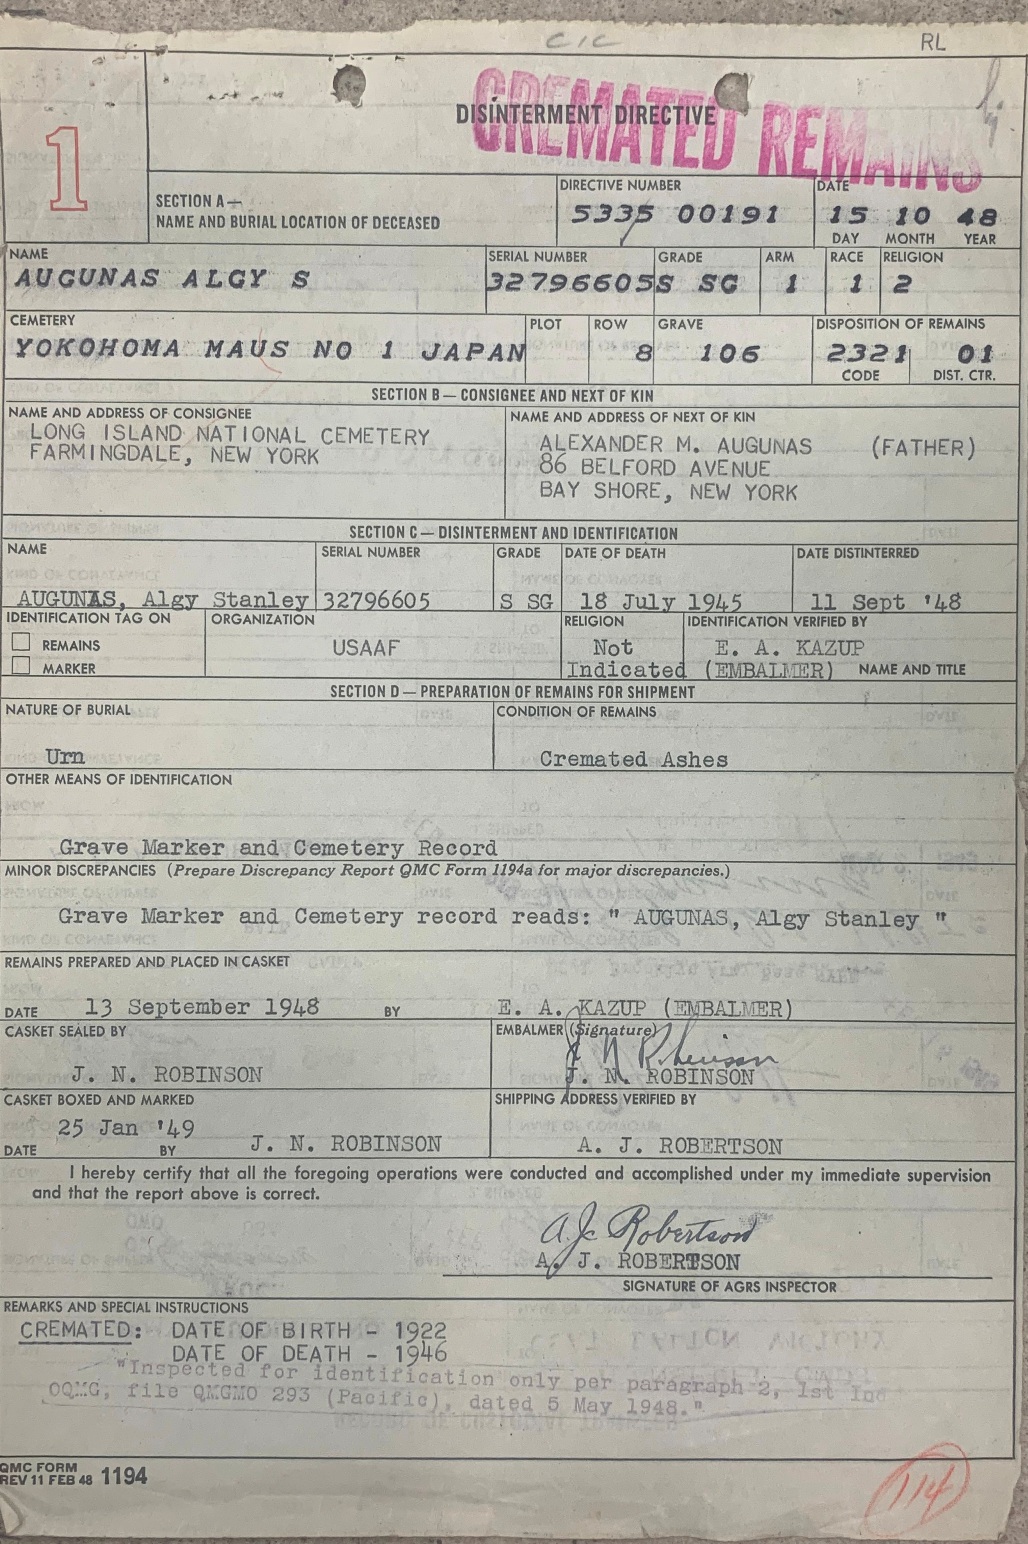 CIC
RL
1
DISINTERMENT DIRECTIVE
CREMATED REMAINS
SECTION A—
NAME AND BURIAL LOCATION OF DECEASED
DIRECTIVE NUMBER
5335 00191
DATE
15 10 48
DAY MONTH YEAR
NAME
AUGUNAS ALGY S
SERIAL NUMBER
32796605
GRADE
S SG
ARM
1
RACE
1
RELIGION
2
CEMETERY
YOKOHOMA MAUS NO 1 JAPAN
PLOT
ROW
8
GRAVE
106
DISPOSITION OF REMAINS
2321 01
CODE DIST. CTR.
SECTION B — CONSIGNEE AND NEXT OF KIN
NAME AND ADDRESS OF CONSIGNEE
LONG ISLAND NATIONAL CEMETERY
FARMINGDALE, NEW YORK
NAME AND ADDRESS OF NEXT OF KIN
ALEXANDER M. AUGUNAS (FATHER)
86 BELFORD AVENUE
BAY SHORE, NEW YORK
SECTION C — DISINTERMENT AND IDENTIFICATION
NAME
AUGUNAS, Algy Stanley
SERIAL NUMBER
32796605
GRADE
S SG
DATE OF DEATH
18 July 1945
DATE DISTINTERRED
11 Sept '48
IDENTIFICATION TAG ON
REMAINS
MARKER
ORGANIZATION
USAAF
RELIGION
Not
Indicated
IDENTIFICATION VERIFIED BY
E. A. KAZUP
(EMBALMER) NAME AND TITLE
SECTION D — PREPARATION OF REMAINS FOR SHIPMENT
NATURE OF BURIAL
Urn
CONDITION OF REMAINS
Cremated Ashes
OTHER MEANS OF IDENTIFICATION
Grave Marker and Cemetery Record
MINOR DISCREPANCIES (Prepare Discrepancy Report QMC Form 1194a for major discrepancies.)
Grave Marker and Cemetery record reads: " AUGUNAS, Algy Stanley "
REMAINS PREPARED AND PLACED IN CASKET
DATE 13 September 1948 BY E. A. KAZUP (EMBALMER)
CASKET SEALED BY
J. N. ROBINSON
EMBALMER (Signature)
J. N. Robinson
J. N. ROBINSON
CASKET BOXED AND MARKED
DATE 25 Jan '49 BY J. N. ROBINSON
SHIPPING ADDRESS VERIFIED BY
A. J. ROBERTSON
I hereby certify that all the foregoing operations were conducted and accomplished under my immediate supervision
and that the report above is correct.
A. J. Robertson
A. J. ROBERTSON
SIGNATURE OF AGRS INSPECTOR
REMARKS AND SPECIAL INSTRUCTIONS
CREMATED: DATE OF BIRTH - 1922
DATE OF DEATH - 1946
"Inspected for identification only per paragraph 2, 1st Ind
OQMG, file QMGMO 293 (Pacific), dated 5 May 1948."
QMC FORM
REV 11 FEB 48 1194
114